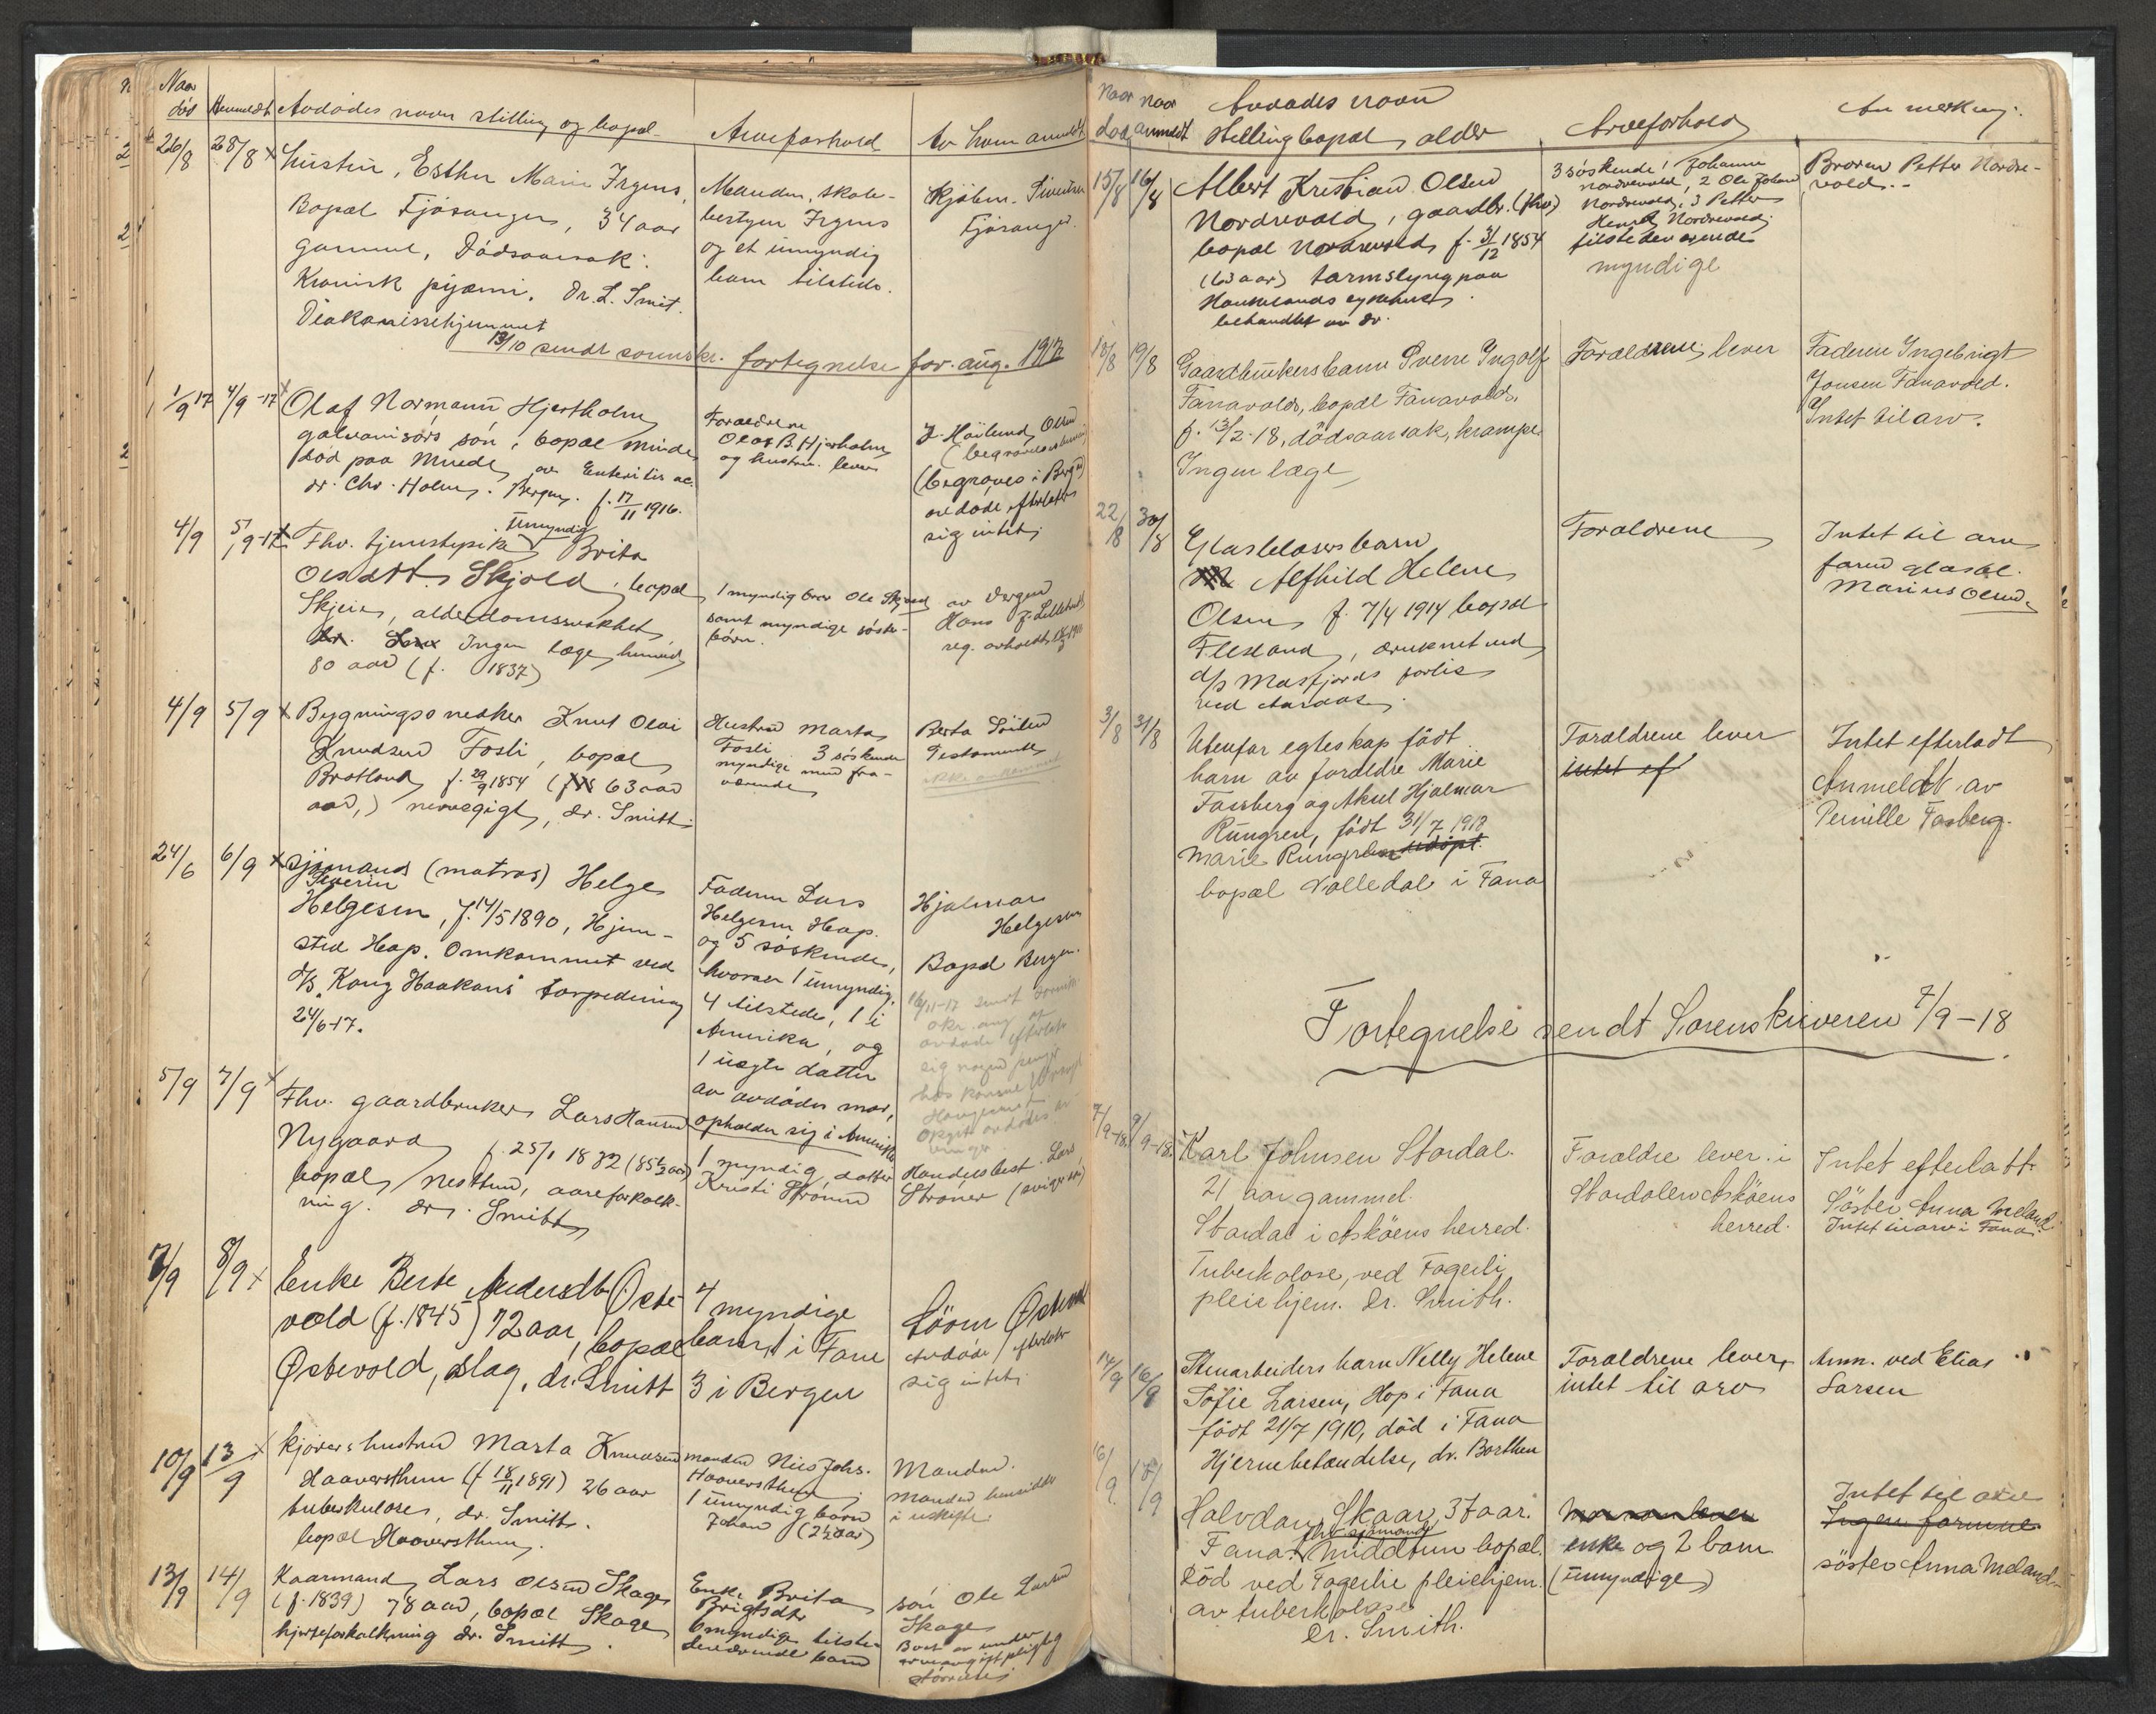 Naar
død Anmeldt Avdødes navn stilling og bopæl Arveforhold Av hvem anmeldt
26/8 28/8 x Hustru, Esther Marie Irgens,
Bopæl Fjøsanger, 34 aar
gammel, Dødsaarsak:
Kronisk pyæmi. Dr. L. Smit.
Diakonissehjemmet
Manden, skole-
bestyrer Irgens
og et umyndig
barn tilstede.
Fjøsanger.
13/10 sendt sorenskr. fortegnelse for aug. 1917
1/9 17 4/9-17 x Olaf Normann Hjertholm
galvanisørs søn, bopæl Minde
død paa Minde, av Enteritis ac.
dr. Chr. Holm, Bergen. f. 17/11 1916.
Forældrene
Olaf B. Hjertholm
og hustru lever
(begraves i Bergen)
avdøde efterlater
sig intet.
4/9 5/9-17 x Fhv. tjenestepike umyndig Brita
Olsdtr. Skjold, bopæl
Skjeie, alderdomssvakhet,
Ingen læge hennet,
80 aar (f. 1837)
1 myndig bror Ole Skjold
samt myndige søster-
børn.
av Vergen
Hans
4/9 5/9 x Bygningssnedker Knut Olai
Knudsen Fosli, bopæl
Bratland, f. 29/9 1854 (63 aar
aar,) nervegigt, dr. Smitt.
Hustru Marta
Fosli 3 søskende
myndige med fra-
værende
Testamente
24/6 6/9 x Sjømand (matros) Helge
Severin
Helgesen, f. 14/5 1890, Hjem-
sted Hop. Omkommet ved
d/s "Kong Haakons" torpedering
24/6-17.
Faderen Lars
Helgesen Hop.
og 5 søskende,
hvorav 1 umyndig.
4 tilstede, 1 i
Amerika, og
1 uegte datter
av avdødes mor,
opholder sig i Amerika
Hjalmar
Helgesen
Bopæl Bergen.
5/9 7/9 x Fhv. gaardbruker Lars Hansen
Nygaard, f. 25/1 1832 (85½ aar)
bopæl, Nesttun, aareforkalk-
ning. dr. Smitt
1 myndig datter
Kristi Strømen
Handelsbest. Lars
(svigersøn)
7/9 8/9 x Enke Berte Andersdtr Øste-
vold (f. 1845) 72 aar, bopæl
Østevold, slag, dr. Smitt
4 myndige
barn, 1 i Fane
3 i Bergen
Østevold
Avdøde efterlater
sig intet.
10/9 13/9 x Kjørers hustru Marta Knudsen
Haaversthun (f 18/11 1891) 26 aar
tuberkulose, dr. Smitt.
bopæl Haaversthun.
manden Nils Johs.
Haaversthun
1 umyndig barn
Johan (2½ aar)
Manden.
Manden hensidder
i uskifte.
13/9 14/9 Kaarmand, Lars Olsen Skage
(f. 1839) 78 aar, bopæl Skage,
hjerteforkalkning dr. Smitt.
Enke Brita
Brigtsdtr
6 myndige tilste-
deværende barn
søn Ole Larsen
Skage
Boet er under
arveavgiftspligtig
størrelse
Naar død naar anmeldt Avdødes navn
stilling bopæl, alder Arveforhold Anmerkning:
15/8 16/8 Albert Kristian Olsen
Nordrevold, gaardbr. (fhv)
bopæl Nordrevold, f. 31/12 1854
(63 aar) tarmslyng paa
Haukelands sykehus
behandlet av dr.
3 søskende, 1 Johanne
Nordrevold, 2 Ole Johan
Nordrevold, 3 Petter
Henrik Nordrevold,
tilstedeværende
myndige
Broren Petter Nordre-
vold.-
18/8 19/8 Gaardbrukersbarn Sverre Ingolf
Fanavold, bopæl Fanavold,
f. 13/2-18, dødsaarsak, krampe.
Ingen læge
Forældrene lever
Faderen Ingebrigt
Jonsen Fanavold.
Intet til arv.
22/8 30/8 Glasblåsersbarn
Alfhild Helene
Olsen, f. 7/4 1914 bopæl
Flesland, druknet ved
d/s Masfjords forlis
ved
Forældrene
Intet til arv
faren glasbl.
Marius Olsen.
3/8 31/8 Utenfor egteskap født
barn av forældre Marie
Fassberg og Aksel Hjalmar
Rungren, født 31/7 1918
Marie Rungren udøpt.
bopæl Valledal i Fana
Forældrene lever
intet ef
Intet efterladt
Anmeldt av
Pernille Fasberg.
Fortegnelse sendt Sorenskriveren 7/9-18
7/9-18. 9/9-18. Karl Johnsen Stordal.
21 aar gammel.
Stordal i Askøens herred.
Tuberkolose, ved Fagerli
pleiehjem. Dr. Smith.
Forældre lever i
Stordalen Askøens
herred.
Intet efterlatt.
Søster Anna Meland.
Intet til arv i Fana.
14/9 16/9 Stenarbeiders barn Nelly Helene
Sofie Larsen, Hop i Fana
født 21/7 1910, død i Fana
Hjernebetændelse, dr. Borthen
Forældrene lever,
intet til arv
Anm. ved Elias
Larsen
16/9 17/9 Halvdan Skaar, 37 aar.
fhv. sjømand
Fana. Middtun bopæl.
Død ved Fagerlie pleiehjem.
av tuberkolose
Dr. Smith.
enke og 2 barn
(umyndige)
Intet til arv
Ingen formue.
søster Anna Meland.